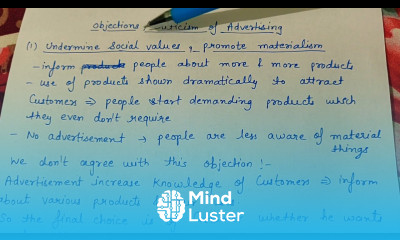 Objections criticism of Advertising
(1) Undermine Social values, promote materialism
- inform people about more & more products
- use of products shown dramatically to attract
Customers ⇒ people start demanding products which
they even don't require
- No advertisement → people are less aware of material
things
We don't agree with this objection!-
Advertisement increase knowledge of Customers ⇒ inform
about various products
So the final choice is whether he wants
Mind
Luster